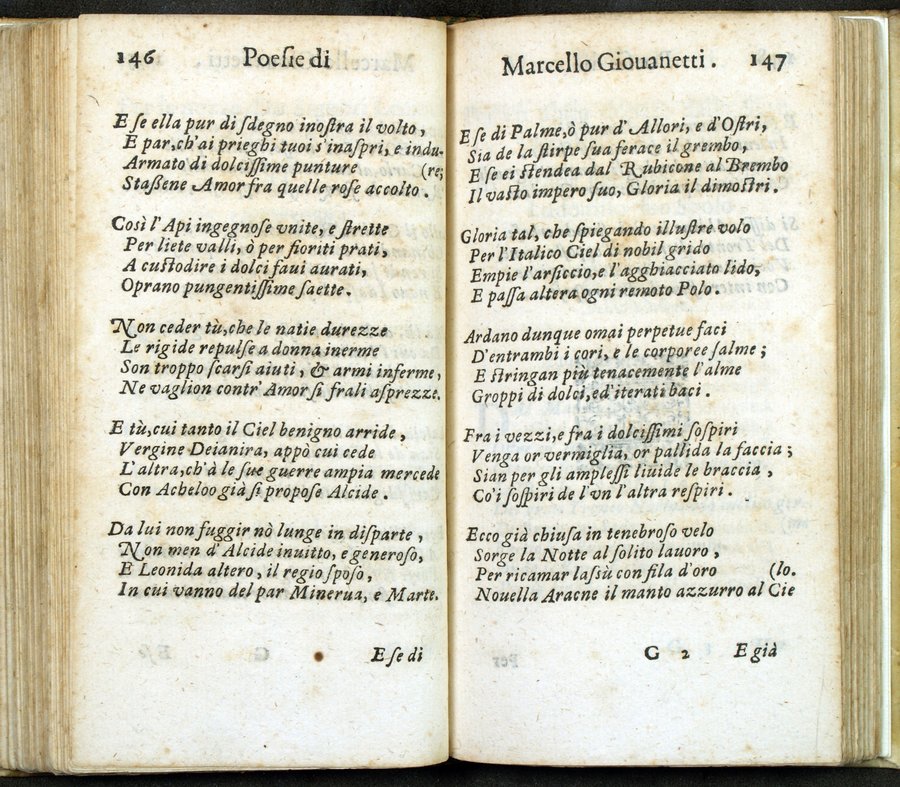 146 Poesie di
E se ella pur di sdegno inostra il volto,
E par, ch'ai prieghi tuoi s'inaspri, e indu-
Armato di dolcissime punture (re;
Staßene Amor fra quelle rose accolto.
Così l'Api ingegnose vnite, e strette
Per liete valli, ò per fioriti prati,
A custodire i dolci faui aurati,
Oprano pungentissime saette.
Non ceder tù, che le natie durezze
Le rigide repulse a donna inerme
Son troppo scarsi aiuti, & armi inferme,
Ne vaglion contr' Amor si frali asprezze.
E tù, cui tanto il Ciel benigno arride,
Vergine Deianira, appò cui cede
L'altra, ch'à le sue guerre ampia mercede
Con Acheloo già si propose Alcide.
Da lui non fuggir nò lunge in disparte,
Non men d'Alcide inuitto, e generoso,
E Leonida altero, il regio sposo,
In cui vanno del par Minerua, e Marte.
E se di
Marcello Giouanetti. 147
E se di Palme, ò pur d'Allori, e d'Ostri,
Sia de la stirpe sua ferace il grembo,
E se ei stendea dal Rubicone al Brembo
Il vasto impero suo, Gloria il dimostri.
Gloria tal, che spiegando illustre volo
Per l'Italico Ciel di nobil grido
Empie l'arsiccio, e l'agghiacciato lido,
E passa altera ogni remoto Polo.
Ardano dunque omai perpetue faci
D'entrambi i cori, e le corporee salme;
E stringan più tenacemente l'alme
Groppi di dolci, ed'iterati baci.
Fra i vezzi, e fra i dolcissimi sospiri
Venga or vermiglia, or pallida la faccia;
Sian per gli amplessi liuide le braccia,
Co'i sospiri de l'vn l'altra respiri.
Ecco già chiusa in tenebroso velo
Sorge la Notte al solito lauoro,
Per ricamar lassù con fila d'oro (lo.
Nouella Aracne il manto azzurro al Cie
G 2 E già